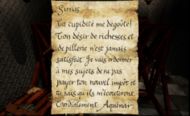 Sirrus,
Ta cupidité me dégoûte!
Ton désir de richesses et
de pillerie n'est jamais
satisfait. Je vais ordonner
à mes sujets de ne pas
payer ton nouvel impôt et
je sais qu'ils m'écouteront.
Cordialement, Aquinar